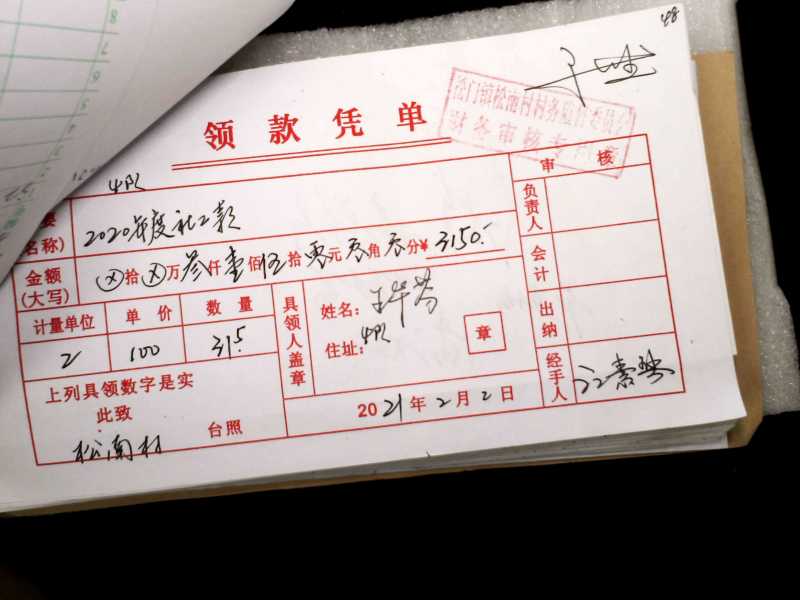 48
领款凭单
财务审核专用章
4队
审核
要
名称)
2020年度社工款
负责人
金额
(大写)
⊗拾⊗万叁仟壹佰伍拾零元零角零分¥3150.-
会计
计量单位 单价 数量
具领人盖章
姓名:
2 100 31.5
住址:4队
章
出纳
上列具领数字是实
此致
台照
2021年2月2日
经手人
松南村